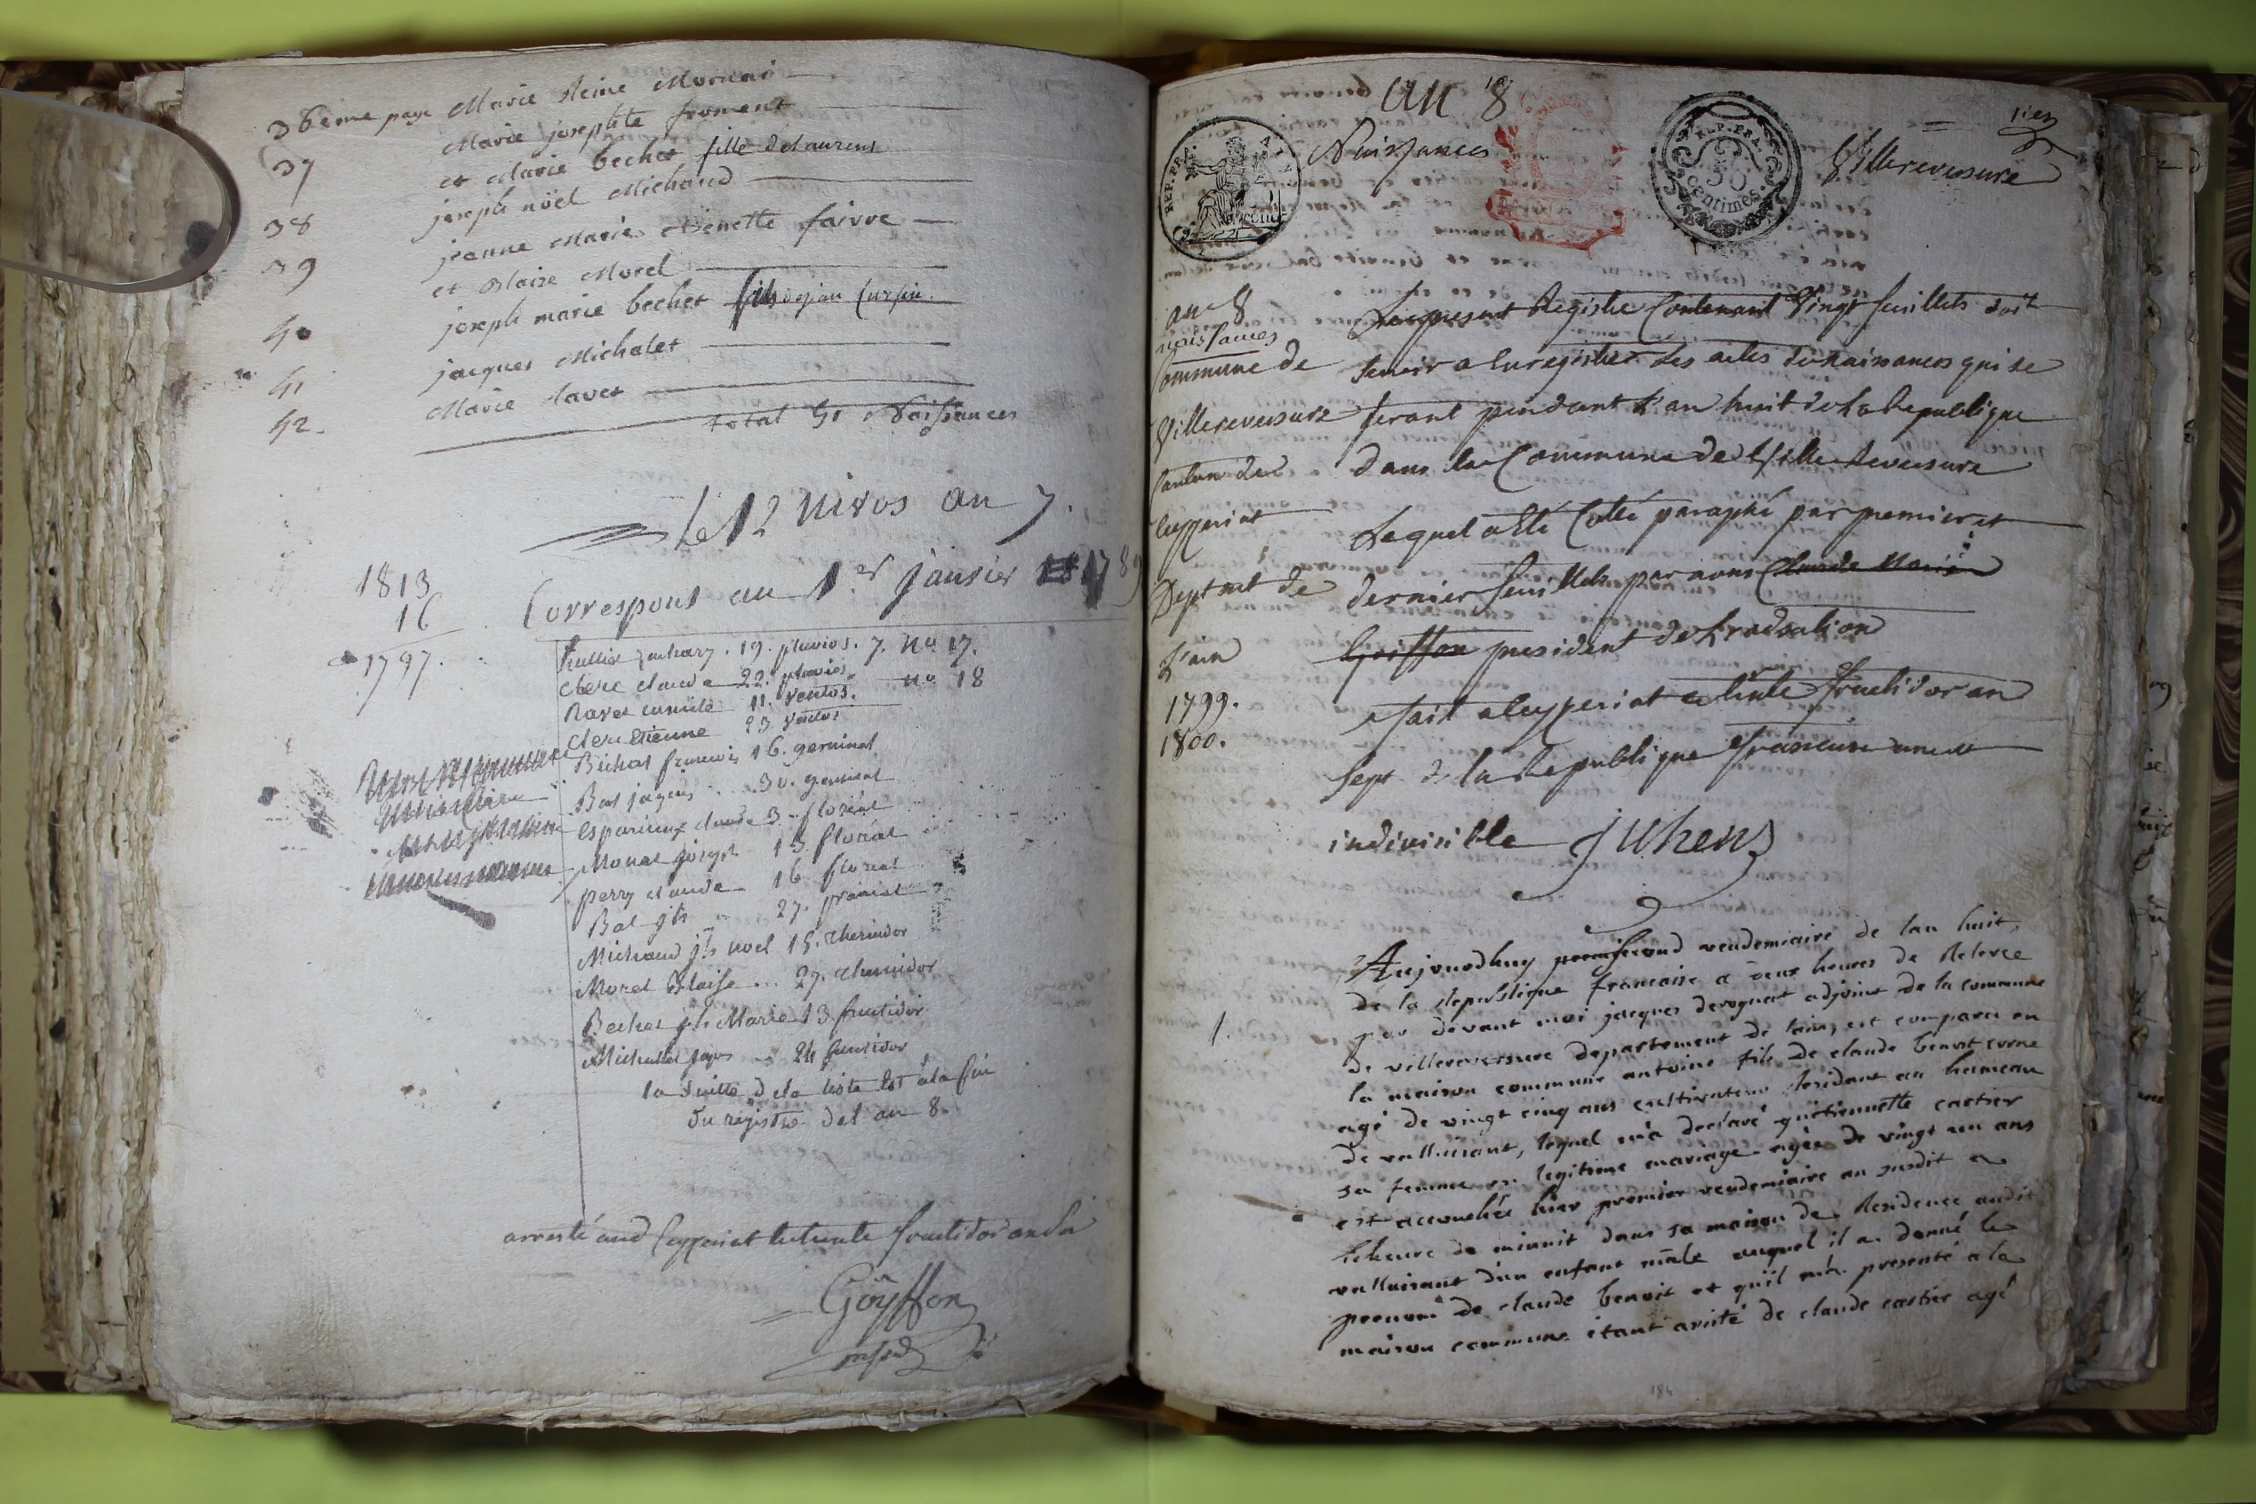 36eme page Marie Reine Mornai
37 Marie josephte froment
et Marie bechet fille de Laurens
38 joseph noël Michaud
39 jeanne Marie Benette faivre
et Blaize Morel
40 joseph marie bechet fils de jan
41 jacques Michalet
42. Marie Tavet
total 41 Naissances
Le 12 nivos an 7.
Correspont au 1er janvier 1789
1813
16
1797.
17. pluvios. 7. no. 17.
Clerc claude 22. pluvios. no 18
Ravet 11. ventos.
Clerc etienne 23 ventos
Bichat francois 16. germinal
Bal jaques 30. germinal
claude 3. floréal
Monet joseph 13 floréal
perry claude 16 floreal
Bal jh 27. prairial
Michaud jh noel 15. thermidor
Morel Blaise ... 27. thermidor
Bechet jh Marie 13 fructidor
Michalet jaqs 24 fructidor
la Suitte de la liste Est a la fin
du régistre del an 8.
arresté aud Ceyzeriat le trente fructidor an
Goÿffon
AN 8
1er
Naissances
REP. FRA.
REP. FRA.
50
centimes.
Villereversure
an 8
naissances
Commune de
Villereversure
Canton de
Ceyzeriat
Deptmt de
L'ain
1799.
1800.
Le present Registre Contenant Vingt feuillets doit
servir a Enregistrer Les actes de naissances qui se
feront pendant L'an huit de La Republique
dans la Commune de Ville Reversure
Lequel a Eté Cotté paraphé par premier et
dernier feuillets par nous Claude Marie
Goiffon president de Ladministration
fait a Ceyzeriat ce trente fructidor an
Sept de la Republique francaise une et
indivisible
1.
Aujourdhuy second vendemiaire de lan huit,
de la republique francaise a deux heures de Relevée
par devant moi jacques devognat adjoint de la commune
de villereversure departement de lain, est comparu en
la maison commune antoine fils de claude benoit corne
agé de vingt cinq ans cultivateur Residant au hameau
de valluisant, lequel m'a declaré qu'etiennette cartier
sa femme en legitime mariage agée de vingt un ans
est accouchée hier premier vendemiaire an susdit a
lheure de minuit dans sa maison de Residence audit
valluisant d'un enfant mâle auquel il a donné le
prenom de claude benoit et qu'il m'a presenté a la
maison commune étant assisté de claude cartier agé
184